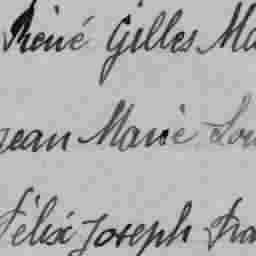 René Gilles Ma
Jean Marie Lou
Félix Joseph Fra